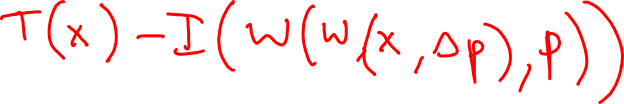 T(x) - I(W(W(x, Δp), p))